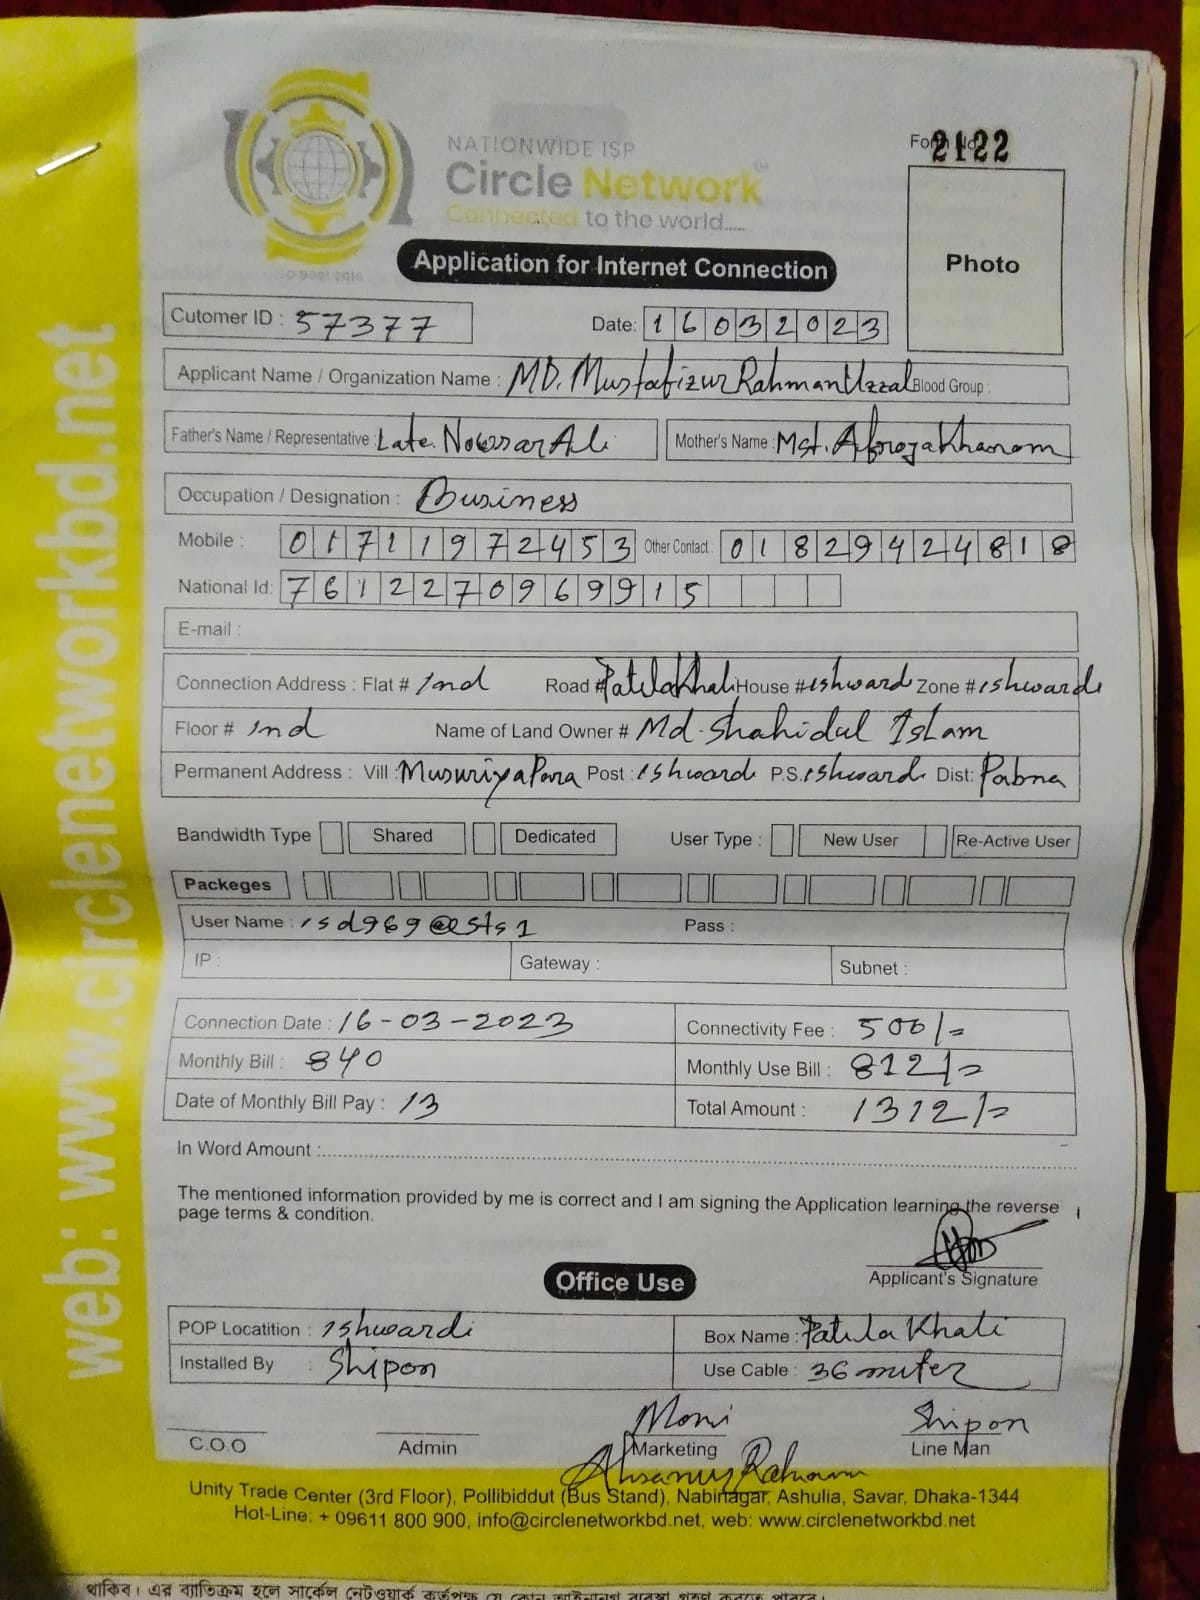 NATIONWIDE ISP
Circle Network
Connected to the world.....
ISO 9001 2015
Form No. 2122
Photo
Application for Internet Connection
Cutomer ID : 57377
Date: 16032023
Applicant Name / Organization Name : MD. Mustafizur Rahman Uzzal Blood Group :
Father's Name / Representative : Late. Nowsar Ali Mother's Name : Mst. Afroja Khanom
Occupation / Designation : Business
Mobile : 01711972453 Other Contact : 01829424818
National Id: 7612270969915
E-mail :
Connection Address : Flat # 2nd Road # Patila Khali House # ishwardi Zone # ishwardi
Floor # 2nd Name of Land Owner # Md. Shahidul Islam
Permanent Address : Vill : Musuriya Para Post : ishwardi P.S. ishwardi Dist: Pabna
Bandwidth Type Shared Dedicated User Type : New User Re-Active User
Packeges
User Name : isd969@sts1 Pass :
IP : Gateway : Subnet :
Connection Date : 16-03-2023 Connectivity Fee : 500/=
Monthly Bill : 840 Monthly Use Bill : 812/=
Date of Monthly Bill Pay : 13 Total Amount : 1312/=
In Word Amount :
The mentioned information provided by me is correct and I am signing the Application learning the reverse
page terms & condition.
Applicant's Signature
Office Use
POP Locatition : ishwardi Box Name : Patila Khali
Installed By : Shipon Use Cable : 36 miter
Moni Shipon
C.O.O Admin Marketing Line Man
Ahsanur Rahman
Unity Trade Center (3rd Floor), Pollibiddut (Bus Stand), Nabinagar, Ashulia, Savar, Dhaka-1344
Hot-Line: + 09611 800 900, info@circlenetworkbd.net, web: www.circlenetworkbd.net
web: www.circlenetworkbd.net
থাকিব। এর ব্যতিক্রম হলে সার্কেল নেটওয়ার্ক কর্তৃপক্ষ যে কোন